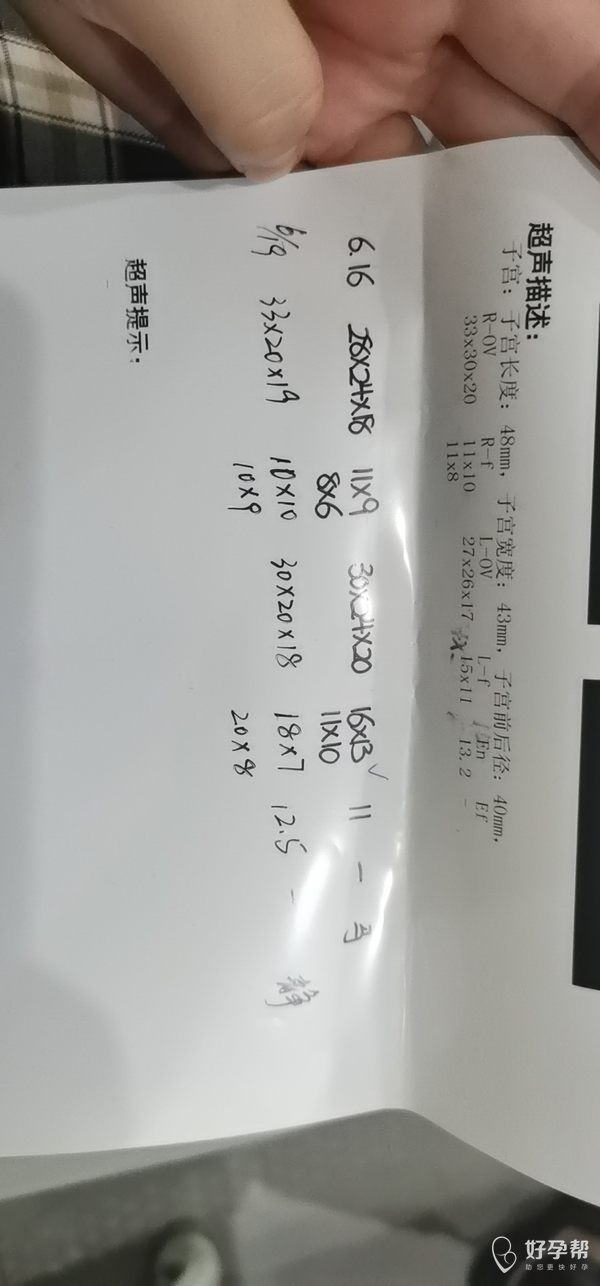 超声描述：
子宫：子宫长度：48mm，子宫宽度：43mm，子宫前后径：40mm，
R-OV R-f L-OV L-f En Ef
33x30x20 11x10 27x26x17 15x11 13.2 -
11x8
6.16 28x24x18 11x9 30x24x20 16x13 √ 11 - 马
8x6 11x10
6/19 33x20x19 10x10 30x20x18 18x7 12.5 - 静
10x9 20x8
超声提示：
好孕帮
助您更快好孕